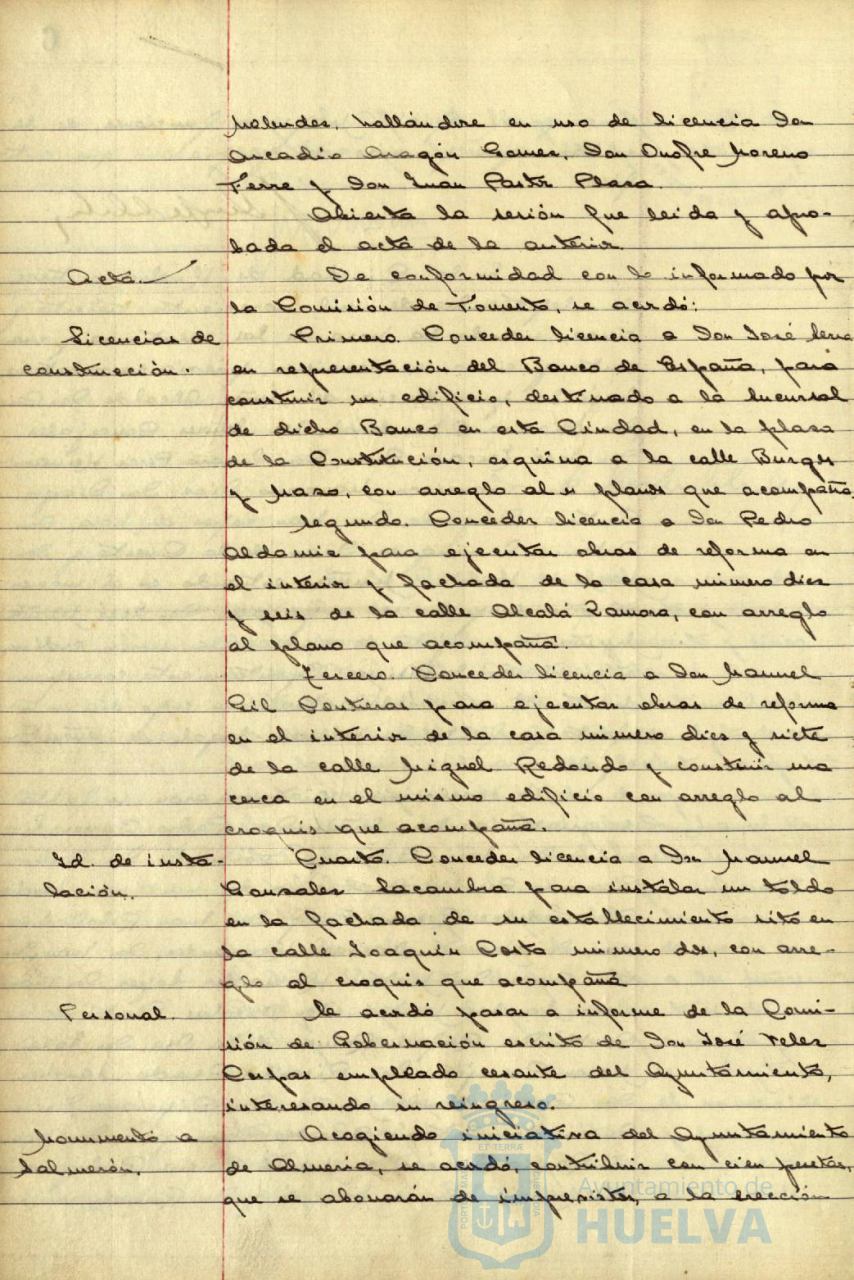 hallándose en uso de licencia Don
Arcadio Aragón Gomez, Don Onofre Moreno
Ferre y Don Juan Pastor Plaza.
Abierta la sesión fue leida y apro-
bada el acta de la anterior.
Acta.
De conformidad con lo informado por
la Comisión de Fomento, se acordó:
Licencias de
construcción.
Primero. Conceder licencia a Don José
en representación del Banco de España, para
construir un edificio, destinado a la Sucursal
de dicho Banco en esta Ciudad, en la plaza
de la Constitución, esquina a la calle Burgos
y Mazo, con arreglo al planos que acompaña.
Segundo. Conceder licencia a Don Pedro
Aldamiz para ejecutar obras de reforma en
el interior y fachada de la casa número diez
y seis de la calle Alcalá Zamora, con arreglo
al plano que acompaña.
Tercero. Conceder licencia a Don Manuel
Gil Contreras para ejecutar obras de reforma
en el interior de la casa número diez y siete
de la calle Miguel Redondo y construir una
cerca en el mismo edificio con arreglo al
croquis que acompaña.
Id. de insta-
lación.
Cuarto. Conceder licencia a Don Manuel
Gonzalez Lacambra para instalar un toldo
en la fachada de su establecimiento sito en
la calle Joaquin Costa número dos, con arre-
glo al croquis que acompaña
Personal.
Se acordó pasar a informe de la Comi-
sión de Gobernación escrito de Don José Velez
Cerpas empleado cesante del Ayuntamiento,
interesando su reingreso.
Monumento a
Salmerón.
Acogiendo iniciativa del Ayuntamiento
de Almeria, se acordó, contribuir con cien pesetas,
que se abonarán de imprevistos, a la erección
Ayuntamiento de
HUELVA